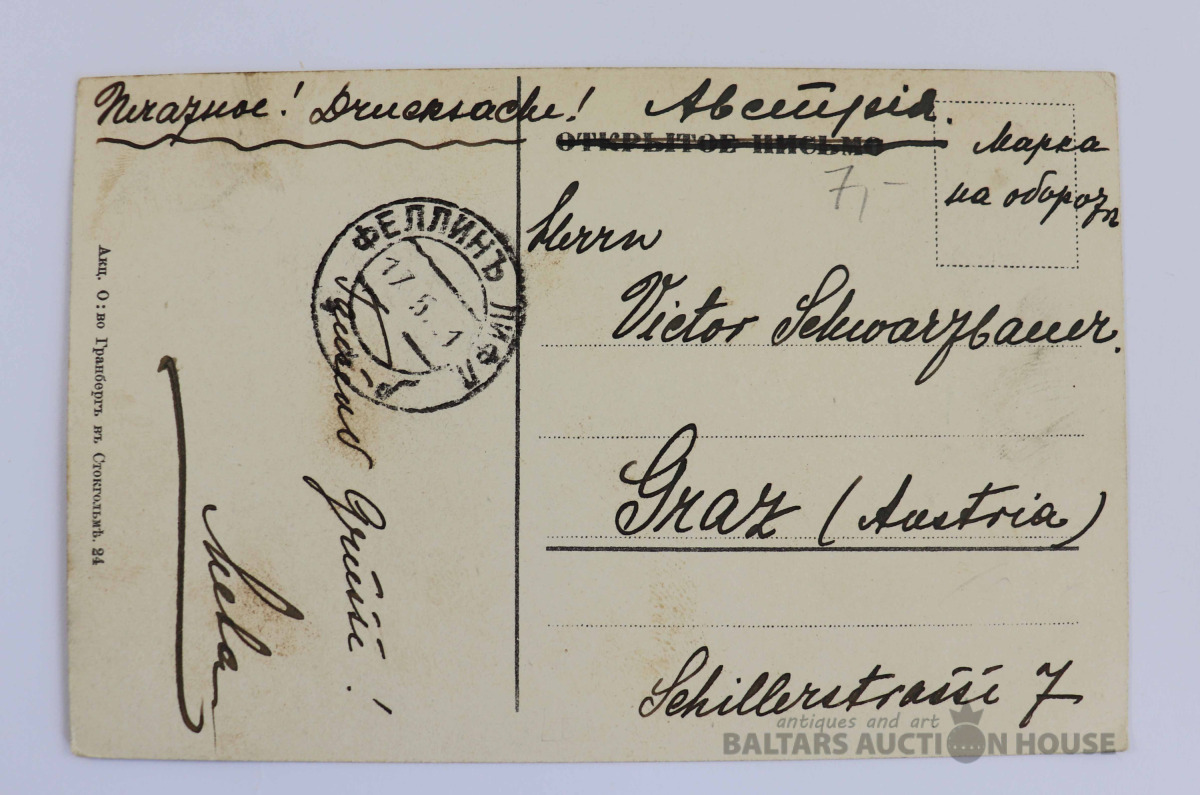 Печатное! Drucksache!
Австрія.
ОТКРЫТОЕ ПИСЬМО
Марка
на оборотѣ
7,-
Herrn
Victor Schwarzbauer.
Graz (Austria)
Schillerstrasse 7
ФЕЛЛИНЪ ЛИФЛ
17 5 1
Grüsse!
Акц. О:во Гранбергъ въ Стокгольмѣ. 24
antiques and art
BALTARS AUCTION HOUSE